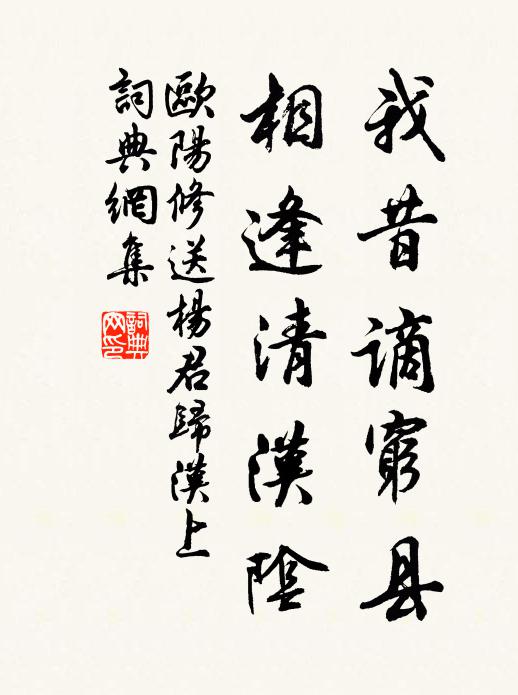 我昔谪窮县
相逢清漢陰
歐陽修送楊君歸漢上
詞典網集
詞典网印